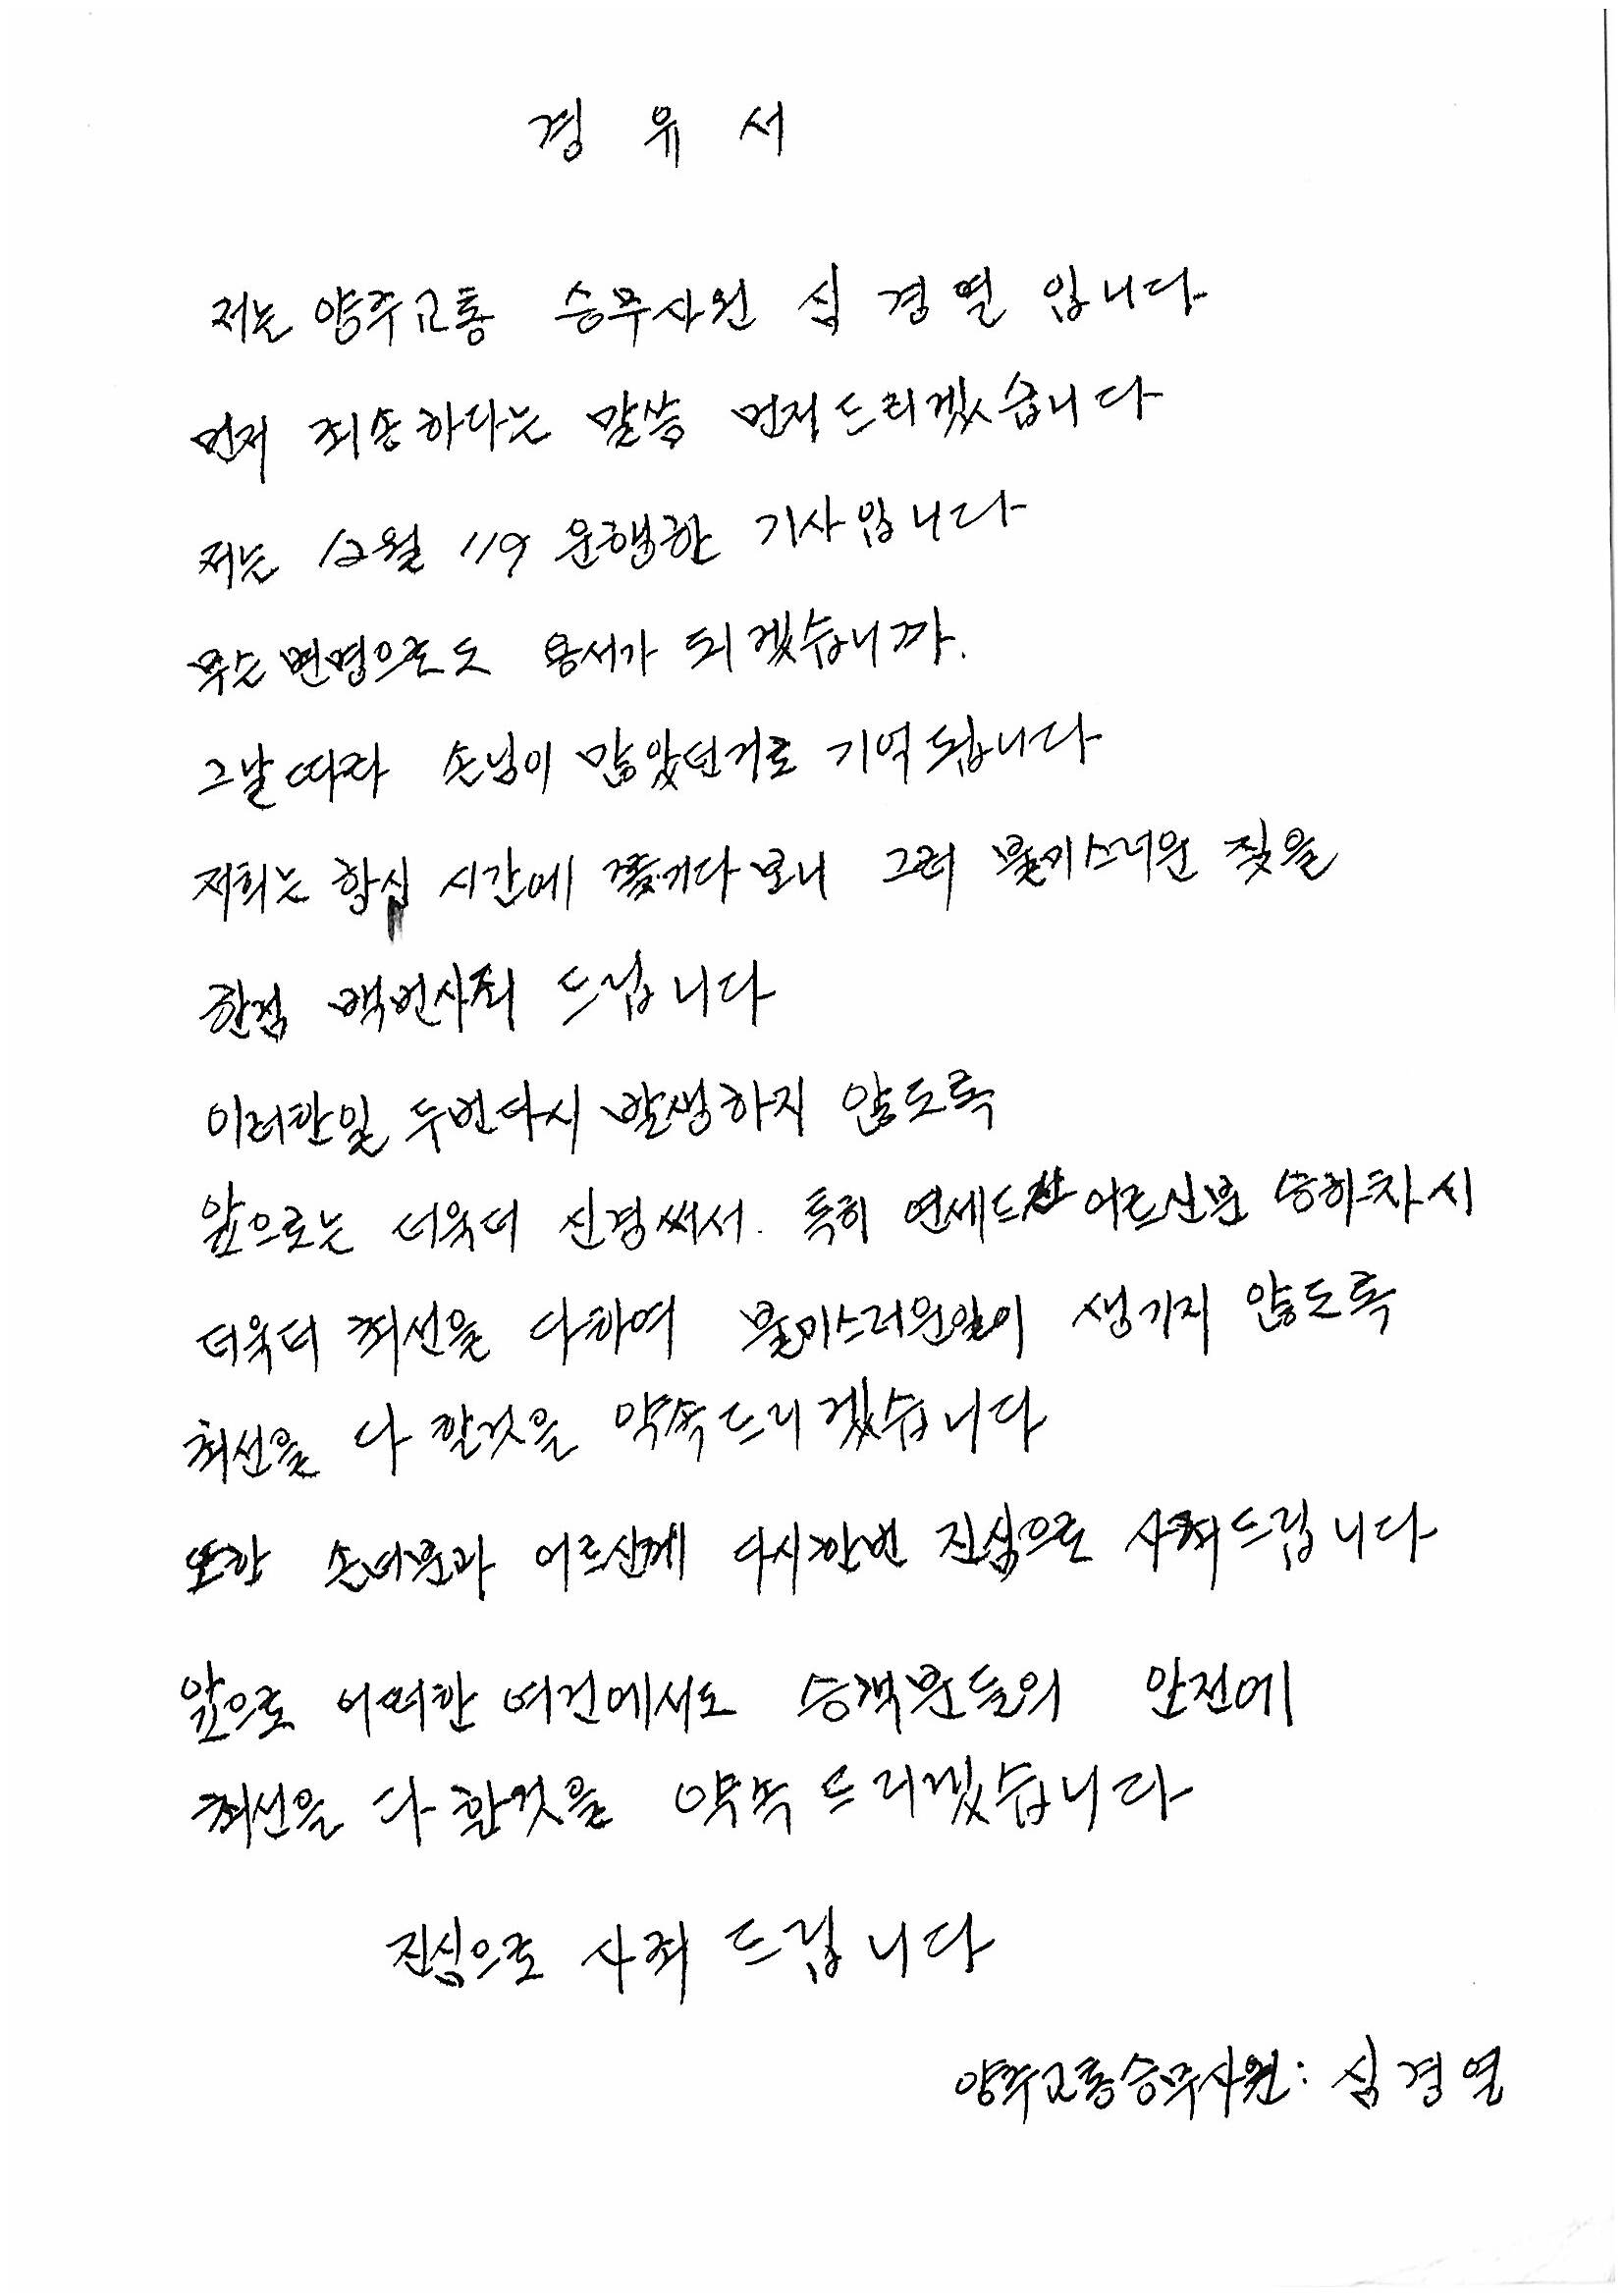 경 유 서
저는 양주교통 승무사원 심 경 열 입니다
먼저 죄송하다는 말씀 먼저 드리겠습니다
저는 12월 119 운행한 기사입니다
무슨 변명으로도 용서가 되겠습니까.
그날따라 손님이 많았던거로 기억됩니다
저희는 항심 시간에 쫓기다 보니 그런 불미스러운 짓을
한점 백번사죄 드립니다
이러한일 두번다시 발생하지 않도록
앞으로는 더욱더 신경써서. 특히 연세드신 어르신분 승하차시
더욱더 최선을 다하여 불미스러운일이 생기지 않도록
최선을 다 할것을 약속드리겠습니다
또한 손녀분과 어르신께 다시한번 진심으로 사죄드립니다
앞으로 어떠한 여건에서도 승객분들의 안전에
최선을 다 할것을 약속 드리겠습니다
진심으로 사죄 드립니다
양주교통승무사원 : 심 경 열